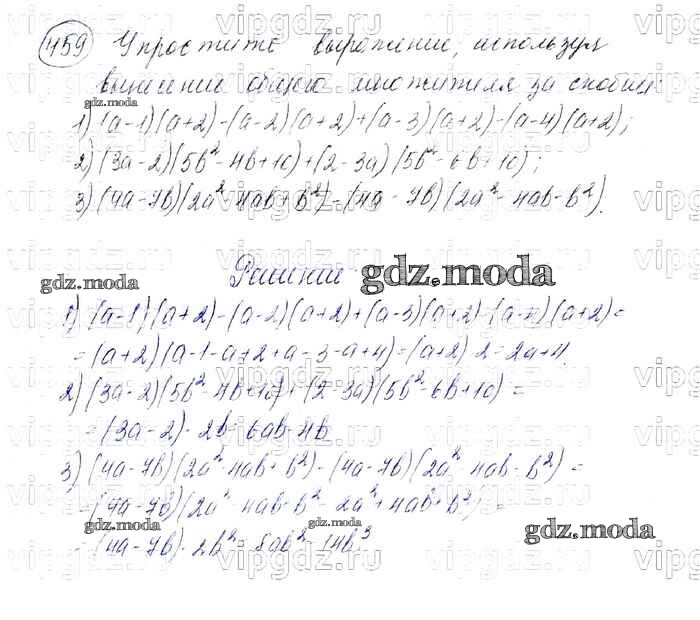 459 Упростите выражение, используя
вынесение общего множителя за скобки:
1) (a-1)(a+2)-(a-2)(a+2)+(a-3)(a+2)-(a-4)(a+2);
2) (3a-2)(5b²-4b+10)+(2-3a)(5b²-6b+10);
3) (4a-7b)(2a²-4ab+b²)-(4a-7b)(2a²-4ab-b²).
Решение
1) (a-1)(a+2)-(a-2)(a+2)+(a-3)(a+2)-(a-4)(a+2)=
=(a+2)(a-1-a+2+a-3-a+4)=(a+2)·2=2a+4.
2) (3a-2)(5b²-4b+10)+(2-3a)(5b²-6b+10)=
=(3a-2)·2b=6ab-4b
3) (4a-7b)(2a²-4ab+b²)-(4a-7b)(2a²-4ab-b²)=
=(4a-7b)(2a²-4ab+b²-2a²+4ab+b²)=
=(4a-7b)·2b²=8ab²-14b³
gdz.moda
gdz.moda
gdz.moda
gdz.moda
gdz.moda
gdz.moda
vipgdz.ru